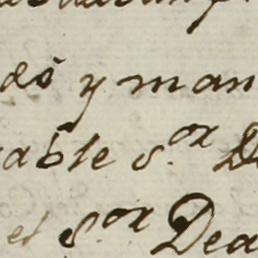 dó y man
able S.ᵒʳ D
el S.ᵒʳ Dea